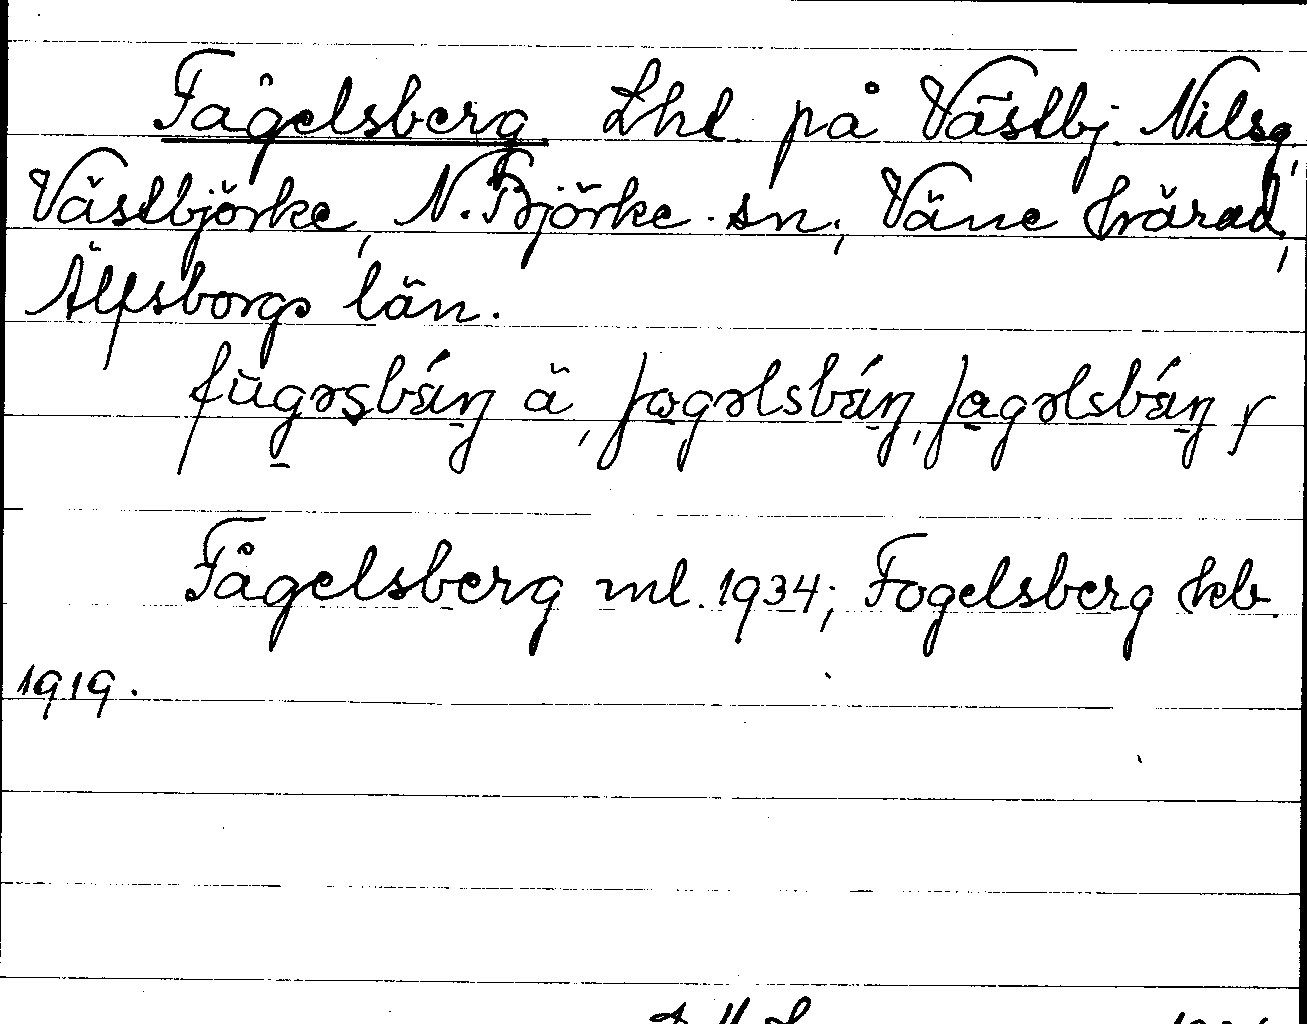 Fågelsberg Lht på Västbj. Nilsg,
Västbjörke, N. Björke sn, Väne härad,
Älfsborgs län.
fùgəsbǽŋ ä, fogəlsbǽŋ, fagəlsbǽŋ y
Fågelsberg ml. 1934; Fogelsberg hkb
1919.